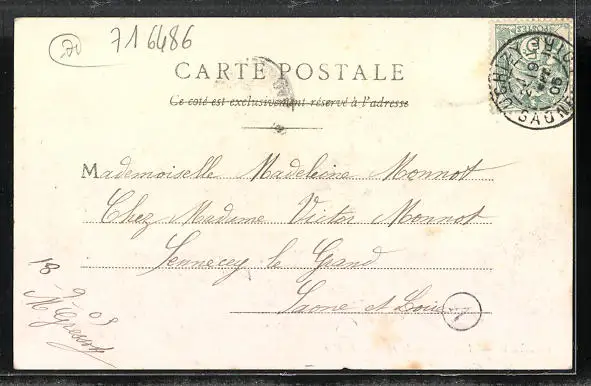 716486
CARTE POSTALE
Ce coté est exclusivement réservé à l'adresse
Mademoiselle Madeleine Monnot
Chez Madame Victor Monnot
Sennecey le Grand
Saone et Loire
18-9-05
SAONE
05